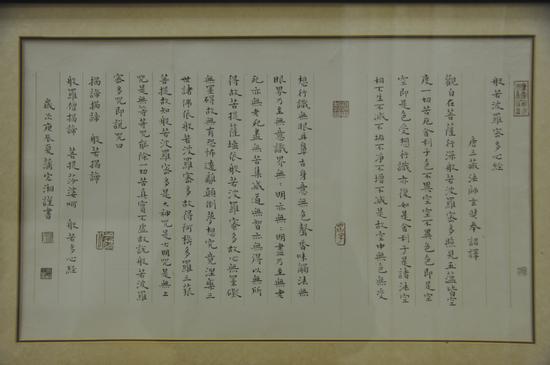 般若波羅蜜多心經
唐三藏法師玄奘奉詔譯
觀自在菩薩行深般若波羅蜜多照見五蘊皆空
度一切苦厄舍利子色不異空空不異色色即是空
空即是色受想行識亦復如是舍利子是諸法空
相不生不滅不垢不淨不增不減是故空中無色無受
想行識無眼耳鼻舌身意無色聲香味觸法無
眼界乃至無意識界無無明亦無無明盡乃至無老
死亦無老死盡無苦集滅道無智亦無得以無所
得故菩提薩埵依般若波羅蜜多故心無罣礙
無罣礙故無有恐怖遠離顛倒夢想究竟涅槃三
世諸佛依般若波羅蜜多故得阿耨多羅三藐
菩提故知般若波羅蜜多是大神咒是大明咒是無上
咒是無等等咒能除一切苦真實不虛故說般若波羅
蜜多咒即說咒曰
揭諦揭諦 般若揭諦
般羅僧揭諦 菩提莎婆呵 般若多心經
歲次庚辰夏 宏湘謹書